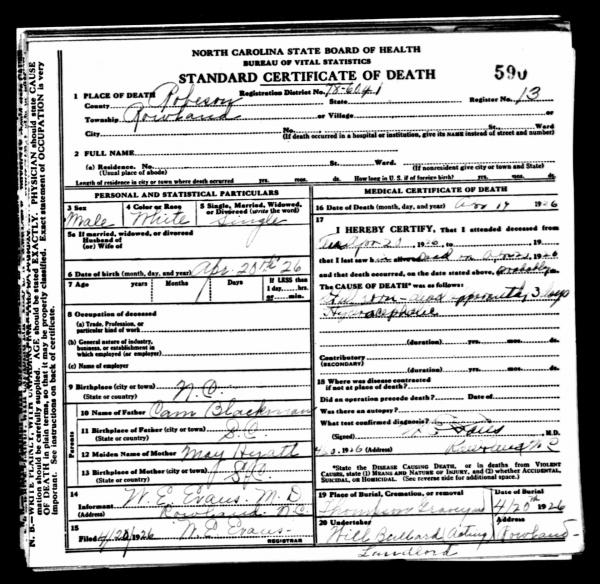 N. B.—WRITE PLAINLY, WITH UNFADING INK
mation should be carefully supplied. AGE should be stated EXACTLY. PHYSICIAN should state CAUSE
OF DEATH in plain terms, so that it may be properly classified. Exact statement of OCCUPATION is very
important. See instructions on back of certificate.
NORTH CAROLINA STATE BOARD OF HEALTH
BUREAU OF VITAL STATISTICS
STANDARD CERTIFICATE OF DEATH
590
1 PLACE OF DEATH Registration District No. 78-6041
County Robeson State Register No. 13
Township Rowland or Village or
City No. St. Ward
(If death occurred in a hospital or institution, give its NAME instead of street and number)
2 FULL NAME
(a) Residence. No. St. Ward.
(Usual place of abode) (If nonresident give city or town and State)
Length of residence in city or town where death occurred yrs. mos. ds. How long in U. S. if of foreign birth? yrs. mos. ds.
PERSONAL AND STATISTICAL PARTICULARS
3 Sex 4 Color or Race 5 Single, Married, Widowed, or Divorced (write the word)
Male White Single
5a If married, widowed, or divorced
Husband of
(or) Wife of
6 Date of birth (month, day, and year) Apr 20th 26
7 Age Years Months Days If LESS than
1 day, hrs.
or min.
8 Occupation of deceased
(a) Trade, Profession, or
particular kind of work
(b) General nature of industry,
business, or establishment in
which employed (or employer)
(c) Name of employer
9 Birthplace (city or town) N.C.
(State or country)
Parents
10 Name of Father Cam Blackman
11 Birthplace of Father (city or town) S.C.
(State or country)
12 Maiden Name of Mother May Hyatt
13 Birthplace of Mother (city or town) S.C.
(State or country)
14
Informant W. E. Evans. M.D
(Address) Rowland N.C
15
Filed 4/20/1926 W. E. Evans.
REGISTRAR
MEDICAL CERTIFICATE OF DEATH
16 Date of Death (month, day, and year) 19 1926
17
I HEREBY CERTIFY, That I attended deceased from
1926, to 19
that I last saw h alive on 1926
and that death occurred, on the date stated above, probably
The CAUSE OF DEATH* was as follows:
3 days
(duration) yrs. mos. ds.
Contributory
(SECONDARY)
(duration) yrs. mos. ds.
18 Where was disease contracted
if not at place of death?
Did an operation precede death? Date of
Was there an autopsy?
What test confirmed diagnosis?
(Signed) M.D.
1926 (Address) Rowland N C
*State the DISEASE CAUSING DEATH, or in deaths from VIOLENT
CAUSES, state (1) MEANS AND NATURE OF INJURY, and (2) whether ACCIDENTAL,
SUICIDAL, or HOMICIDAL. (See reverse side for additional space.)
19 Place of Burial, Cremation, or removal Date of Burial
Thompson 4/20th 1926
20 Undertaker Address
Will Bullard Acting Rowland
Landlord